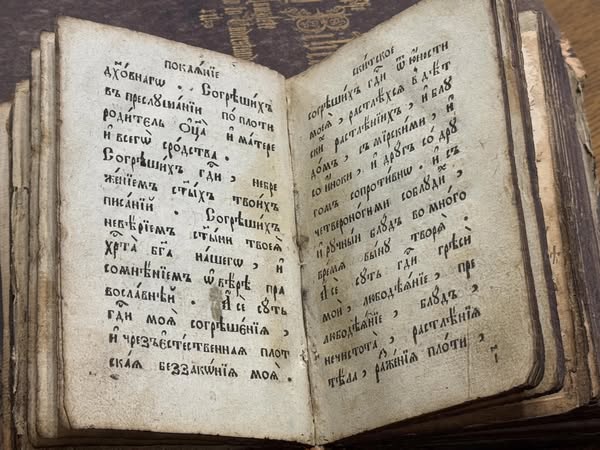 покаѧ́нїе
дꙋхо́внагѡ . Согрѣши́хъ
въ преслꙋша́нїи по́ плоти
роди́тель Оц҃а̀ и҆ ма́тере
и҆ всегѡ̀ сро́дства .
Согрѣши́хъ гд҇и , небре
же́нїемъ ст҃ы́хъ твои́хъ
писа́нїй . Согрѣши́хъ
невѣ́рїемъ ст҃ы́ни твоеѧ̀
хр҇та̀ бг҃а нашегѡ , и҆
сомнѣ́нїемъ ѡ҆ вѣ́рѣ пра
восла́внѣй . И҆ се сꙋ́ть
гд҇и моѧ̀ согрѣше́нїѧ ,
и҆ чрезъесте́ственнаѧ плот
ска́ѧ беззако́нїѧ моѧ̀ .
ски́тское
согрѣши́хъ гд҇и ѿ ю҆́ности
моеѧ̀ , растлѣ́хсѧ в̾ дѣт
ски растлѣ́нїихъ , и҆ блꙋ
до́мъ , съ мірски́ми , и҆
со и҆́ноки , и҆ дрꙋ́гъ со дрꙋ
гомъ сопроти́внѡ . и҆ съ
четвероно́гими соблꙋди́хъ ,
и҆ рꙋчны́й блꙋ́дъ во мно́го
вре́мѧ вы́нꙋ творѧ̀ .
И҆ се сꙋ́ть гд҇и грѣсѝ
мои̑ , любодѣѧ́нїе , пре
любодѣѧ́нїе , блꙋ́дъ ,
нечистота̀ , растлѣ́нїѧ
тѣ́ла , раже́нїѧ пло́ти ,